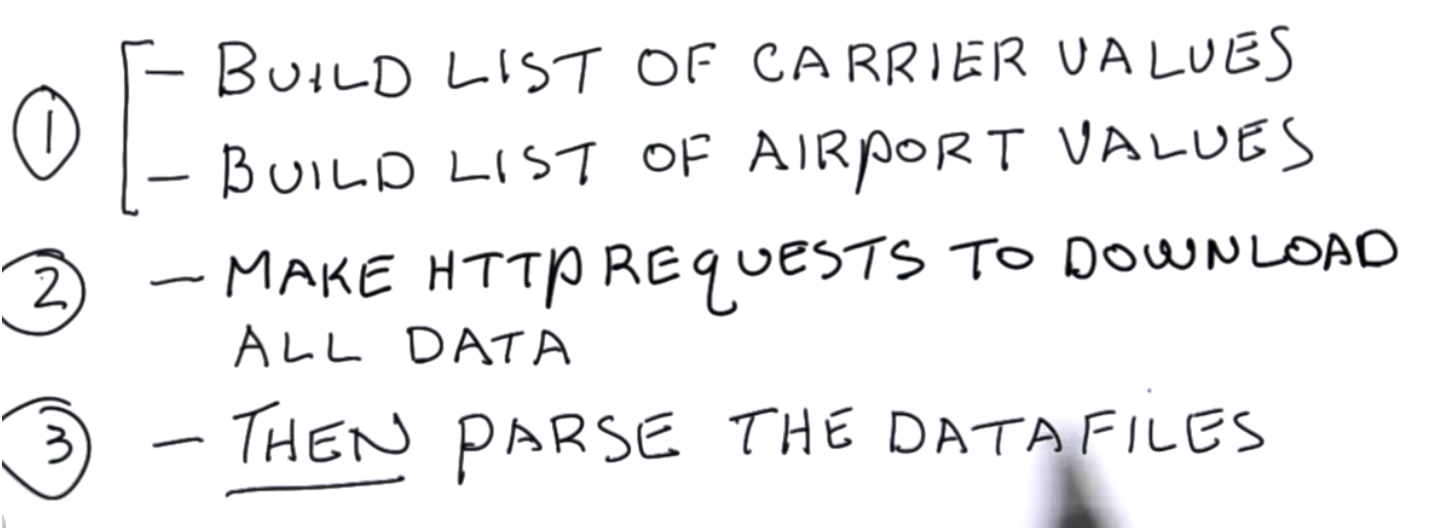 ① - BUILD LIST OF CARRIER VALUES
- BUILD LIST OF AIRPORT VALUES
② - MAKE HTTP REQUESTS TO DOWNLOAD
ALL DATA
③ - THEN PARSE THE DATA FILES